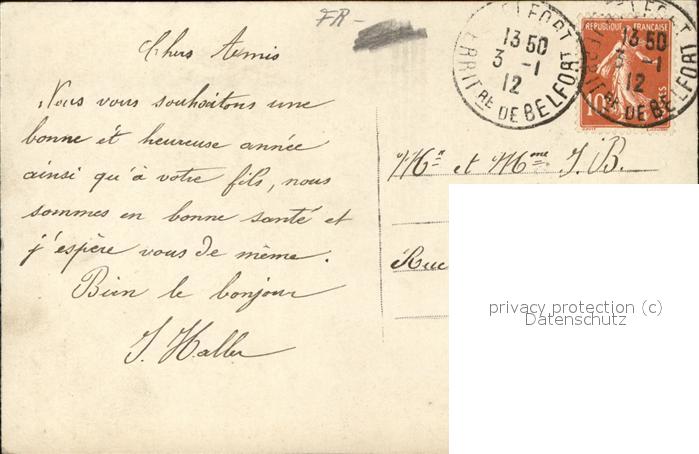 FR-
Chers Amis
Nous vous souhaitons une
bonne ét heureuse année
ainsi qu'à votre fils, nous
sommes en bonne santé et
j'espère vous de même.
Bien le bonjour
J. Haller
BELFORT
13 50
3 -1
12
TERRIT RE DE BELFORT
REPUBLIQUE FRANÇAISE
10
POSTES
13 50
3 -1
12
RE DE BELFORT
Mr et Mme J. B.
Rue
privacy protection (c)
Datenschutz